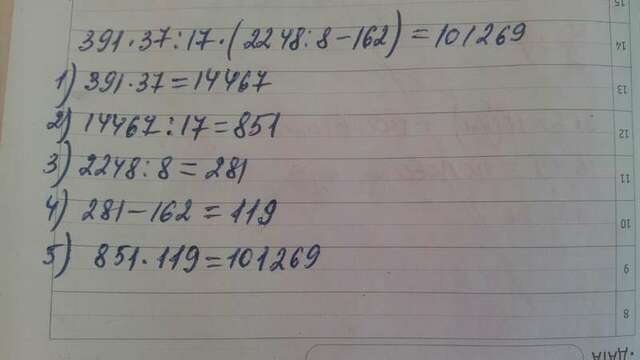 391·37:17·(2248:8-162)=101269
1) 391·37=14467
2) 14467:17=851
3) 2248:8=281
4) 281-162=119
5) 851·119=101269
15
14
13
12
11
10
9
8
ДАТА